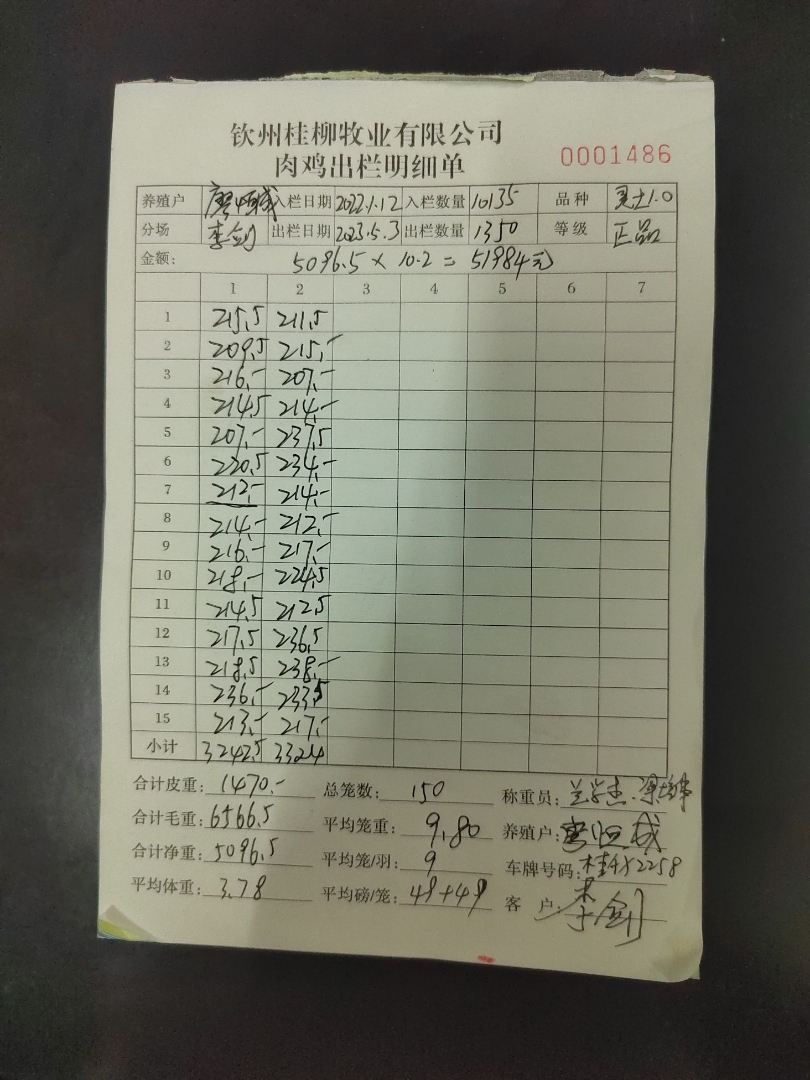 钦州桂柳牧业有限公司
肉鸡出栏明细单 0001486
养殖户 廖恒成 入栏日期 2022.1.12 入栏数量 10135 品种 灵土1.0
分场 李剑 出栏日期 2023.5.3 出栏数量 1350 等级 正品
金额: 5096.5 × 10.2 = 51984元
1 2 3 4 5 6 7
1 215.5 211.5
2 209.5 215.-
3 216.- 207.-
4 214.5 214.-
5 207.- 237.5
6 220.5 234.-
7 212.- 214.-
8 214.- 212.-
9 216.- 217.-
10 218.- 224.5
11 214.5 212.5
12 217.5 236.5
13 218.5 238.-
14 236.- 233.5
15 213.- 217.-
小计 3242.5 3324
合计皮重: 1470.- 总笼数: 150 称重员:
合计毛重: 6566.5 平均笼重: 9.80 养殖户: 廖恒成
合计净重: 5096.5 平均笼/羽: 9 车牌号码: 桂AX2258
平均体重: 3.78 平均磅/笼: 49+49 客户: 李剑